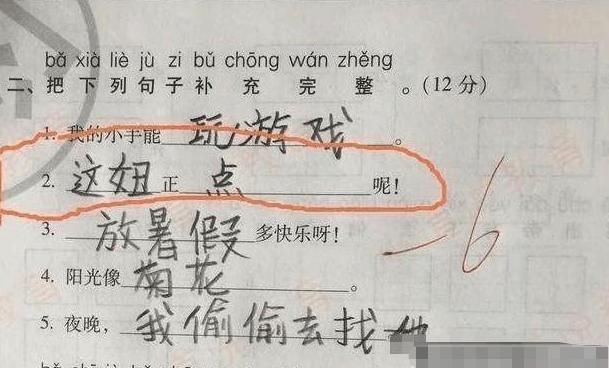 bǎ xià liè jù zi bǔ chōng wán zhěng
二、把下列句子补充完整。(12分)
1. 我的小手能玩游戏。
2. 这妞正点呢!
3. 放暑假多快乐呀!
4. 阳光像菊花。
5. 夜晚,我偷偷去找她
-6